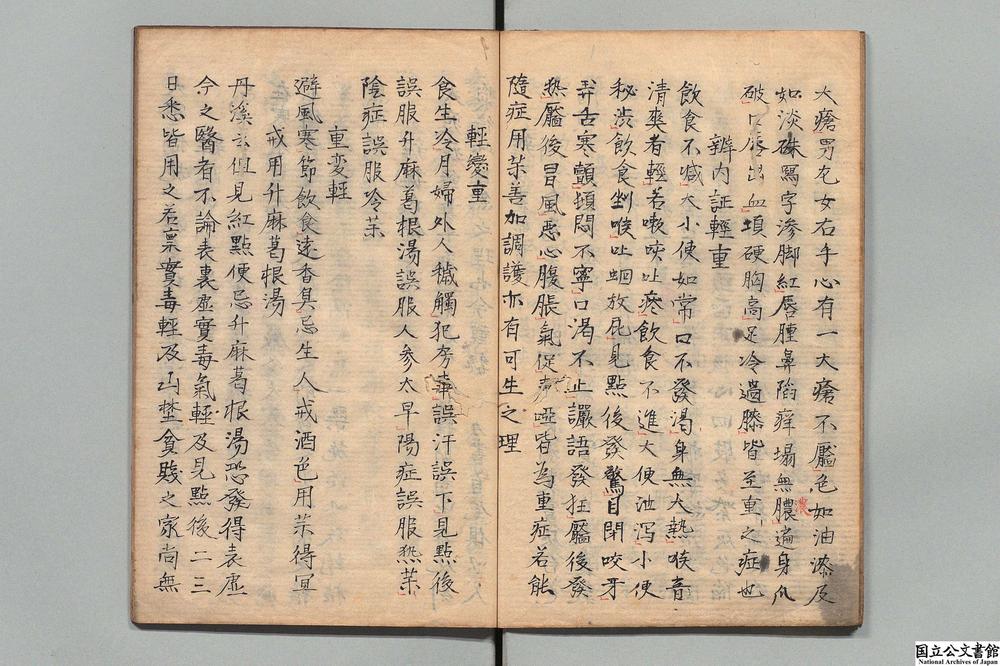 大瘡男左女右手心有一大瘡不靨色如油漆及
如淡硃寫字滲脚紅唇腫鼻陷痒塌無膿遍身爪
破口唇出血項硬胸高足冷過膝皆至重之症也
辨內証輕重
飲食不減大小便如常口不發渴身無大熱喉音
清爽者輕若嗽唾吐痰飲食不進大便泄瀉小便
秘澁飲食剉喉吐蛔放屁見點後發驚目閉咬牙
弄舌寒顫煩悶不寧口渴不止讝語發狂靨後發
热靨後冒風惡心腹脹氣促聲啞皆為重症若能
隨症用茶善加調護亦有可生之理
輕變重
食生冷月婦外人穢觸犯房事誤汗誤下見點後
誤服升麻葛根湯誤服人參太早陽症誤服热茶
陰症誤服冷茶
重変輕
避風寒節飲食遠香臭忌生人戒酒色用茶得宜
戒用升麻葛根湯
丹溪云但見紅點便忌升麻葛根湯恐發得表虛
今之醫者不論表裏虛實毒氣輕及見點後二三
日悉皆用之若禀實毒輕及山埜貧賤之家尚無
国立公文書館
National Archives of Japan